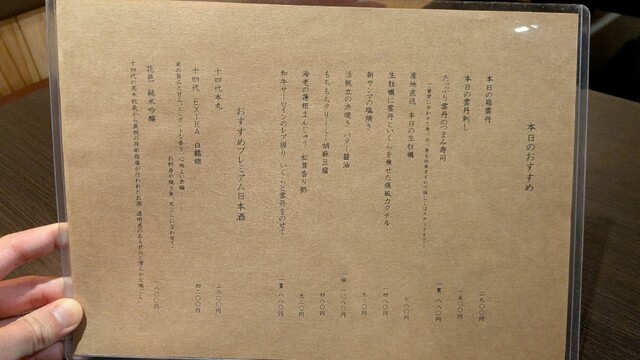 本日のおすすめ
本日の箱雲丹 二九〇〇円
本日の雲丹刺し 一五〇〇円
たっぷり雲丹のつまみ寿司 一貫 八八〇円
産地直送 本日の生牡蠣 七八〇円
生牡蠣に雲丹といくらを乗せた痛風カクテル 一四八〇円
新サンマの塩焼き 九二〇円
活帆立の浜焼き バター醤油 一個 一〇八〇円
もちもちクリーミー胡麻豆腐 四八〇円
海老の蓮根まんじゅう 松茸香り餡 九二〇円
和牛サーロインのレア握り いくらと雲丹をのせて 一貫 八八〇円
おすすめプレミアム日本酒
十四代 本丸 二三〇〇円
十四代 EXTRA 白鶴錦 四二〇〇円
花邑 純米吟醸 一八〇〇円